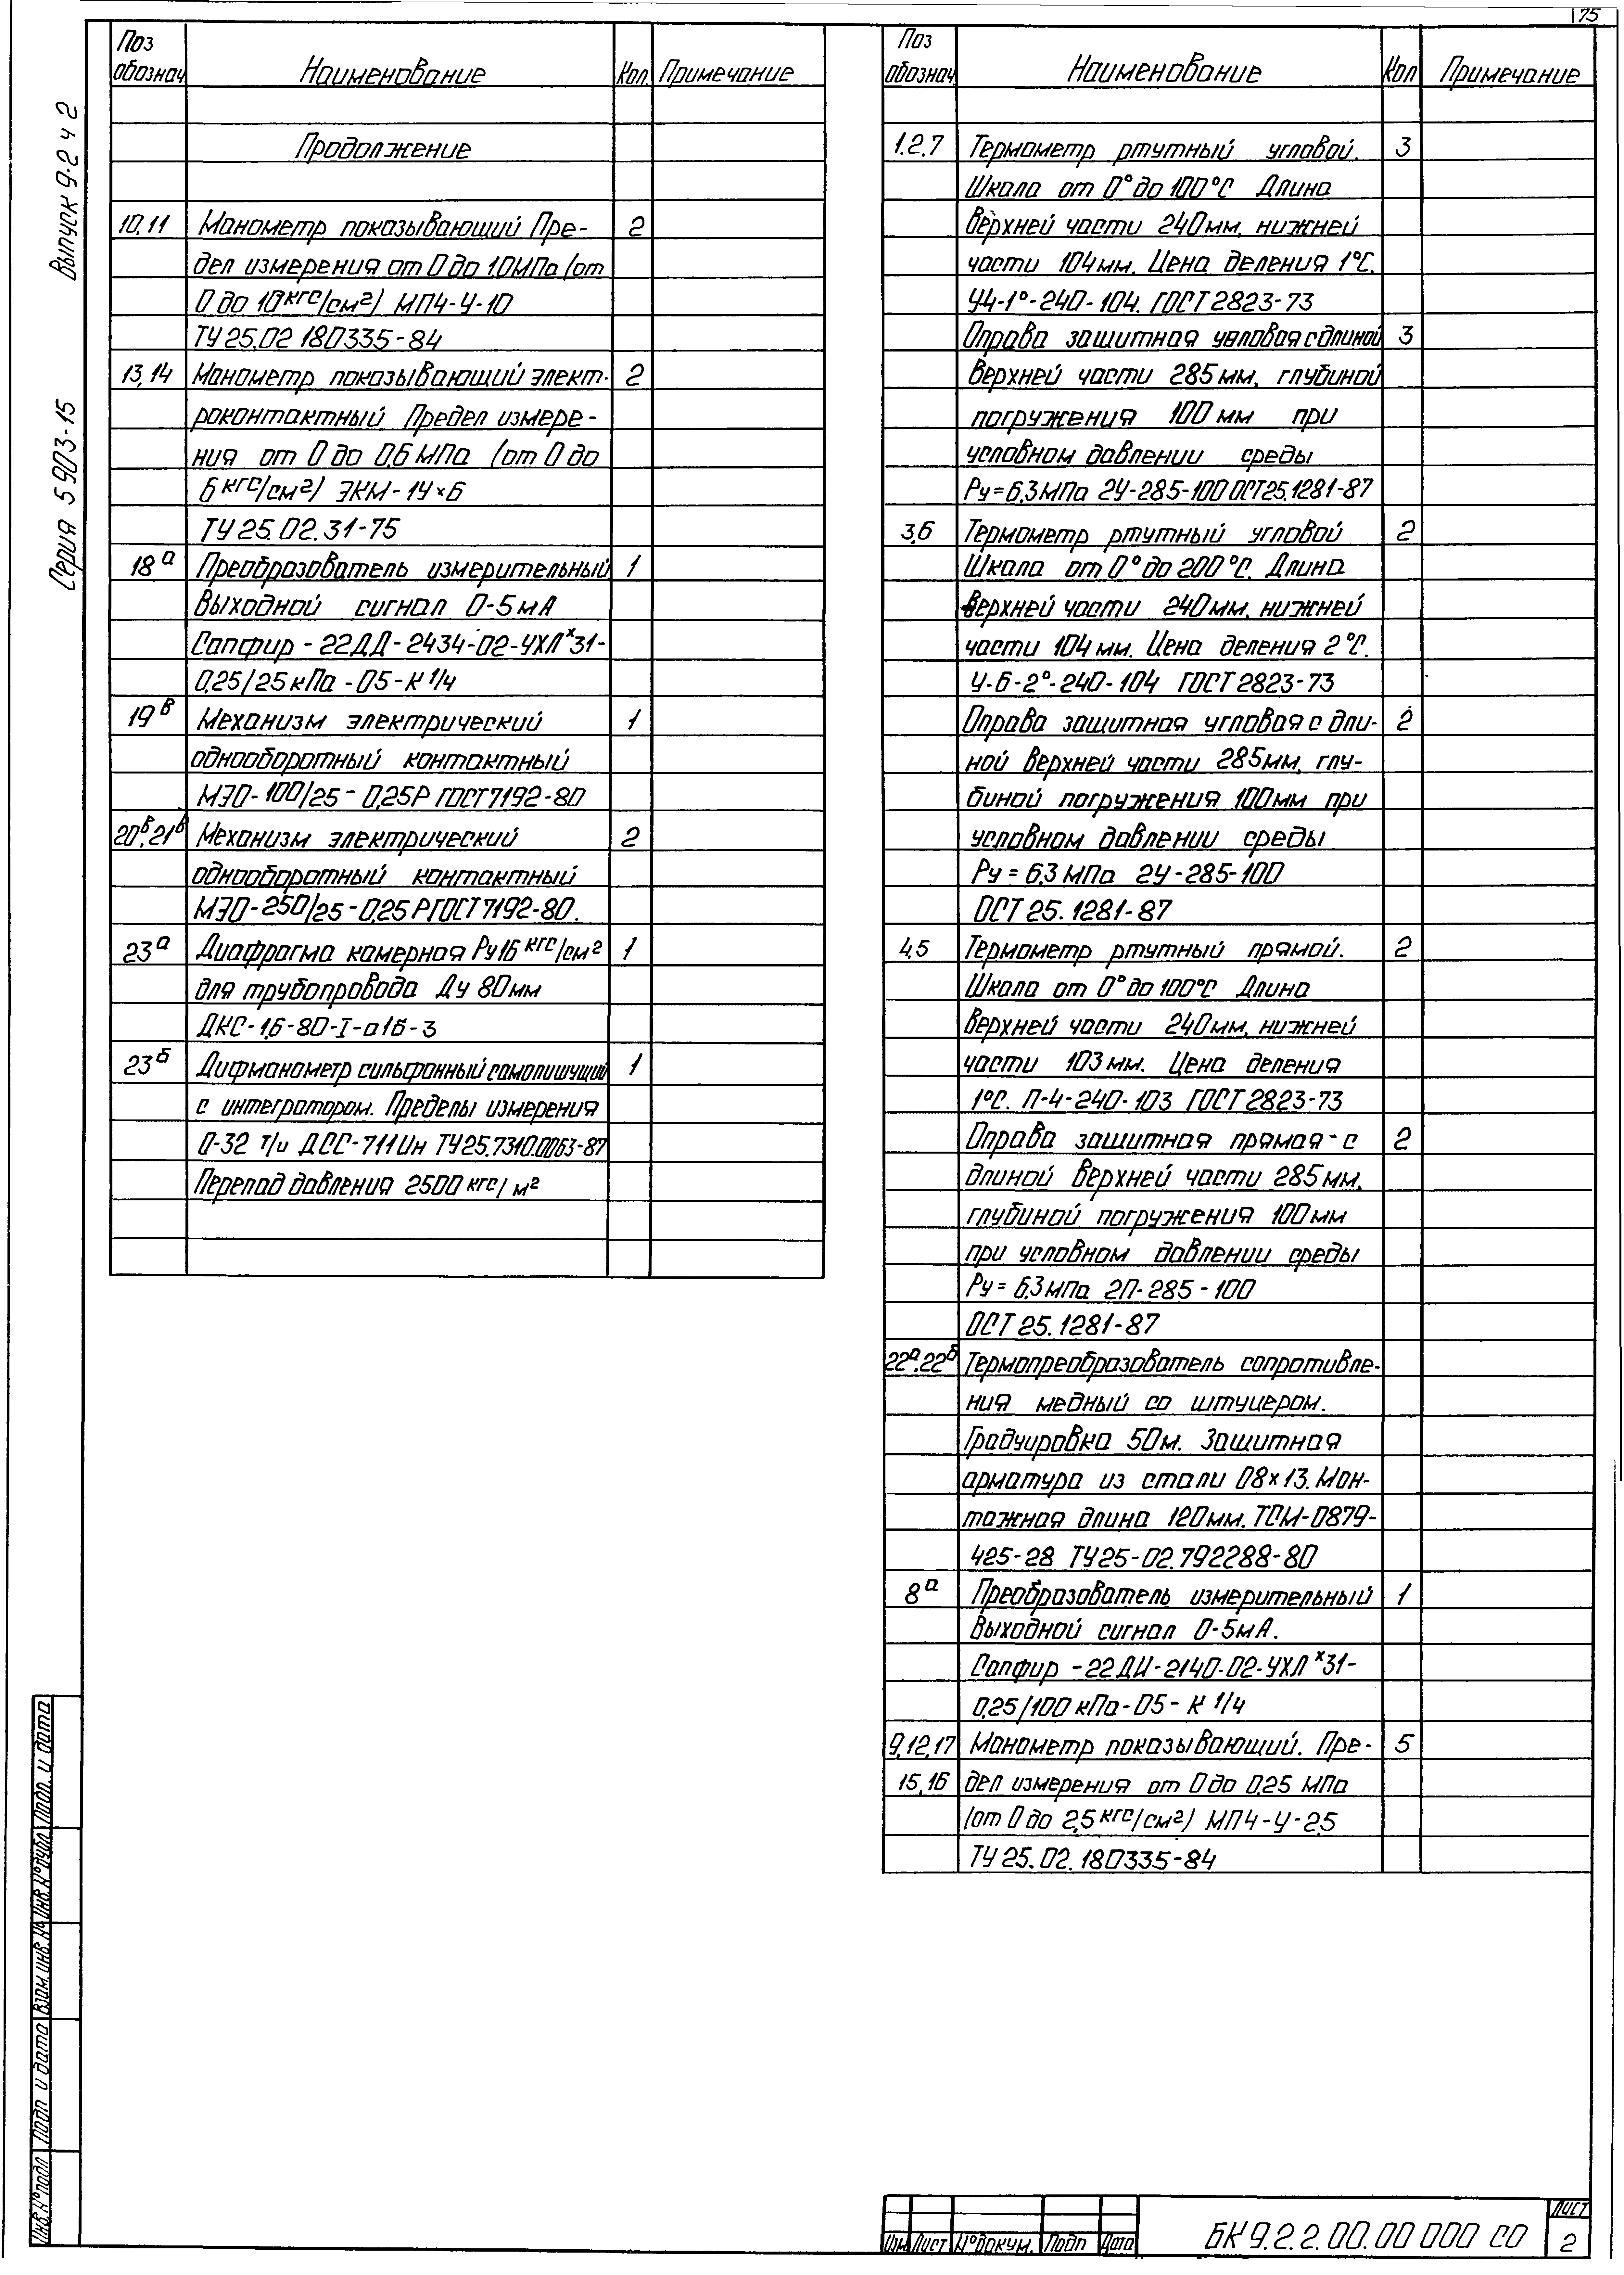 175
Выпуск 9-2 ч 2
Серия 5 903-15
Поз обознач
Наименование
Кол.
Примечание
Продолжение
10,11 Манометр показывающий Пре- 2
дел измерения от 0 до 1.0МПа (от
0 до 10 кгс/см²) МП4-У-10
ТУ 25.02 180335-84
13,14 Манометр показывающий элект- 2
роконтактный Предел измере-
ния от 0 до 0,6 МПа (от 0 до
6 кгс/см²) ЭКМ-1У×6
ТУ 25.02.31-75
18ª Преобразователь измерительный 1
Выходной сигнал 0-5мА
Сапфир-22ДД-2434-02-УХЛ*31-
0,25/25кПа-05-К 1/4
19ᵇ Механизм электрический 1
однооборотный контактный
МЭО-100/25-0,25Р ГОСТ 7192-80
20ᵇ,21ᵇ Механизм электрический 2
однооборотный контактный
МЭО-250/25-0,25 Р ГОСТ 7192-80.
23ª Диафрагма камерная Ру16 кгс/см² 1
для трубопровода Ду 80мм
ДКС-1,6-80-I-а1б-3
23б Дифманометр сильфонный самопишущий 1
с интегратором. Пределы измерения
0-32 т/ч ДСС-711Ин ТУ25.7310.0063-87
Перепад давления 2500 кгс/м²
Поз обознач
Наименование
Кол
Примечание
1.2.7 Термометр ртутный угловой. 3
Шкала от 0° до 100°С Длина
верхней части 240мм, нижней
части 104мм. Цена деления 1°С.
У4-1°-240-104. ГОСТ 2823-73
Оправа защитная угловая с длиной 3
верхней части 285мм, глубиной
погружения 100мм при
условном давлении среды
Ру=6,3МПа 2У-285-100 ОСТ25.1281-87
3,6 Термометр ртутный угловой 2
Шкала от 0° до 200°С. Длина
верхней части 240мм, нижней
части 104мм. Цена деления 2°С.
У-6-2°-240-104 ГОСТ 2823-73
Оправа защитная угловая с дли- 2
ной верхней части 285мм, глу-
биной погружения 100мм при
условном давлении среды
Ру=6,3 МПа 2У-285-100
ОСТ 25.1281-87
4,5 Термометр ртутный прямой. 2
Шкала от 0° до 100°С Длина
верхней части 240мм, нижней
части 103мм. Цена деления
1°С. П-4-240-103 ГОСТ 2823-73
Оправа защитная прямая-с 2
длиной верхней части 285мм,
глубиной погружения 100мм
при условном давлении среды
Ру=6,3МПа 2П-285-100
ОСТ 25.1281-87
22ª.22б Термопреобразователь сопротивле-
ния медный со штуцером.
Градуировка 50м. Защитная
арматура из стали 08×13. Мон-
тажная длина 120мм. ТСМ-0879-
425-28 ТУ25-02.792288-80
8ª Преобразователь измерительный 1
Выходной сигнал 0-5мА.
Сапфир-22ДИ-2140-02-УХЛ*31-
0,25/100 кПа-05-К 1/4
9,12,17 Манометр показывающий. Пре- 5
15,16 дел измерения от 0 до 0,25 МПа
(от 0 до 2,5 кгс/см²) МП4-У-2,5
ТУ 25.02.180335-84
Инв.№подл
Подп и дата
Взам.инв.№
Инв.№дубл
Подп. и дата
Изм Лист №докум. Подп Дата
БК 9.2.2.00.00 000 СО
Лист
2